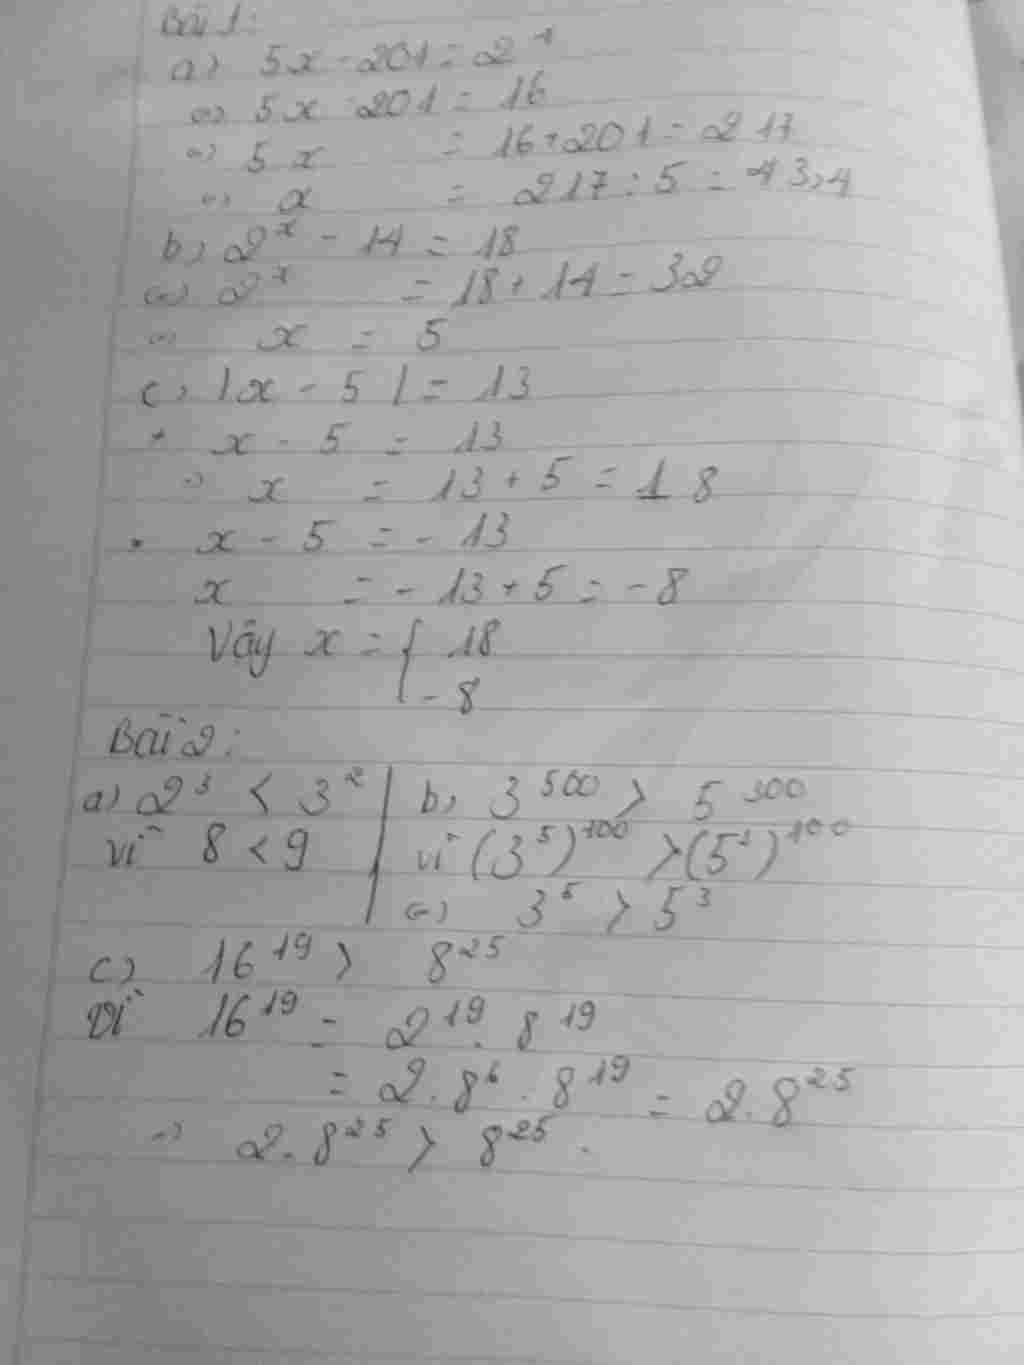 Bài 1:
a) 5x - 201 = 2⁴
<=> 5x - 201 = 16
<=> 5x = 16 + 201 = 217
<=> x = 217 : 5 = 43,4
b) 2ˣ - 14 = 18
<=> 2ˣ = 18 + 14 = 32
<=> x = 5
c) |x - 5| = 13
* x - 5 = 13
=> x = 13 + 5 = 18
* x - 5 = - 13
x = - 13 + 5 = - 8
Vậy x = { 18
- 8
Bài 2:
a) 2³ < 3²
vì 8 < 9
b) 3⁵⁰⁰ > 5³⁰⁰
vì (3⁵)¹⁰⁰ > (5³)¹⁰⁰
<=> 3⁵ > 5³
c) 16¹⁹ > 8²⁵
vì 16¹⁹ = 2¹⁹ . 8¹⁹
= 2 . 8⁶ . 8¹⁹ = 2 . 8²⁵
=> 2 . 8²⁵ > 8²⁵ .